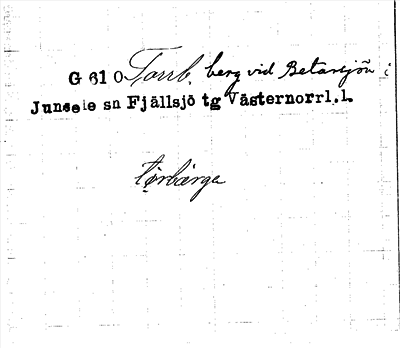 G 61 0 Torrb. berg vid Betarsjön i
Junsele sn Fjällsjö tg Västernorrl.l.
tørbärge